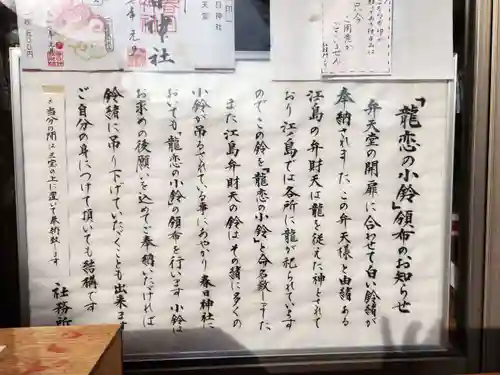 「龍恋の小鈴」頒布のお知らせ
弁天堂の開扉に合わせて白い鈴緒が
奉納されました、この弁天様と由緒ある
江島の弁財天は龍を従えた神とされて
おり江ノ島では各所に龍が祀られています
のでこの鈴を「龍恋の小鈴」と命名致しました、
また江島弁財天の鈴はその緒に多くの
小鈴が吊るされている事にあやかり春日神社に
おいても「龍恋の小鈴」の頒布を行います 小鈴は
お求めの後願いを込めてご奉納いただければ
鈴緒に吊り下げていただくことも出来ます
ご自分の身につけて頂いても結構です
社務所
*当分の間は三宝の上に置いて奉納致します
神社